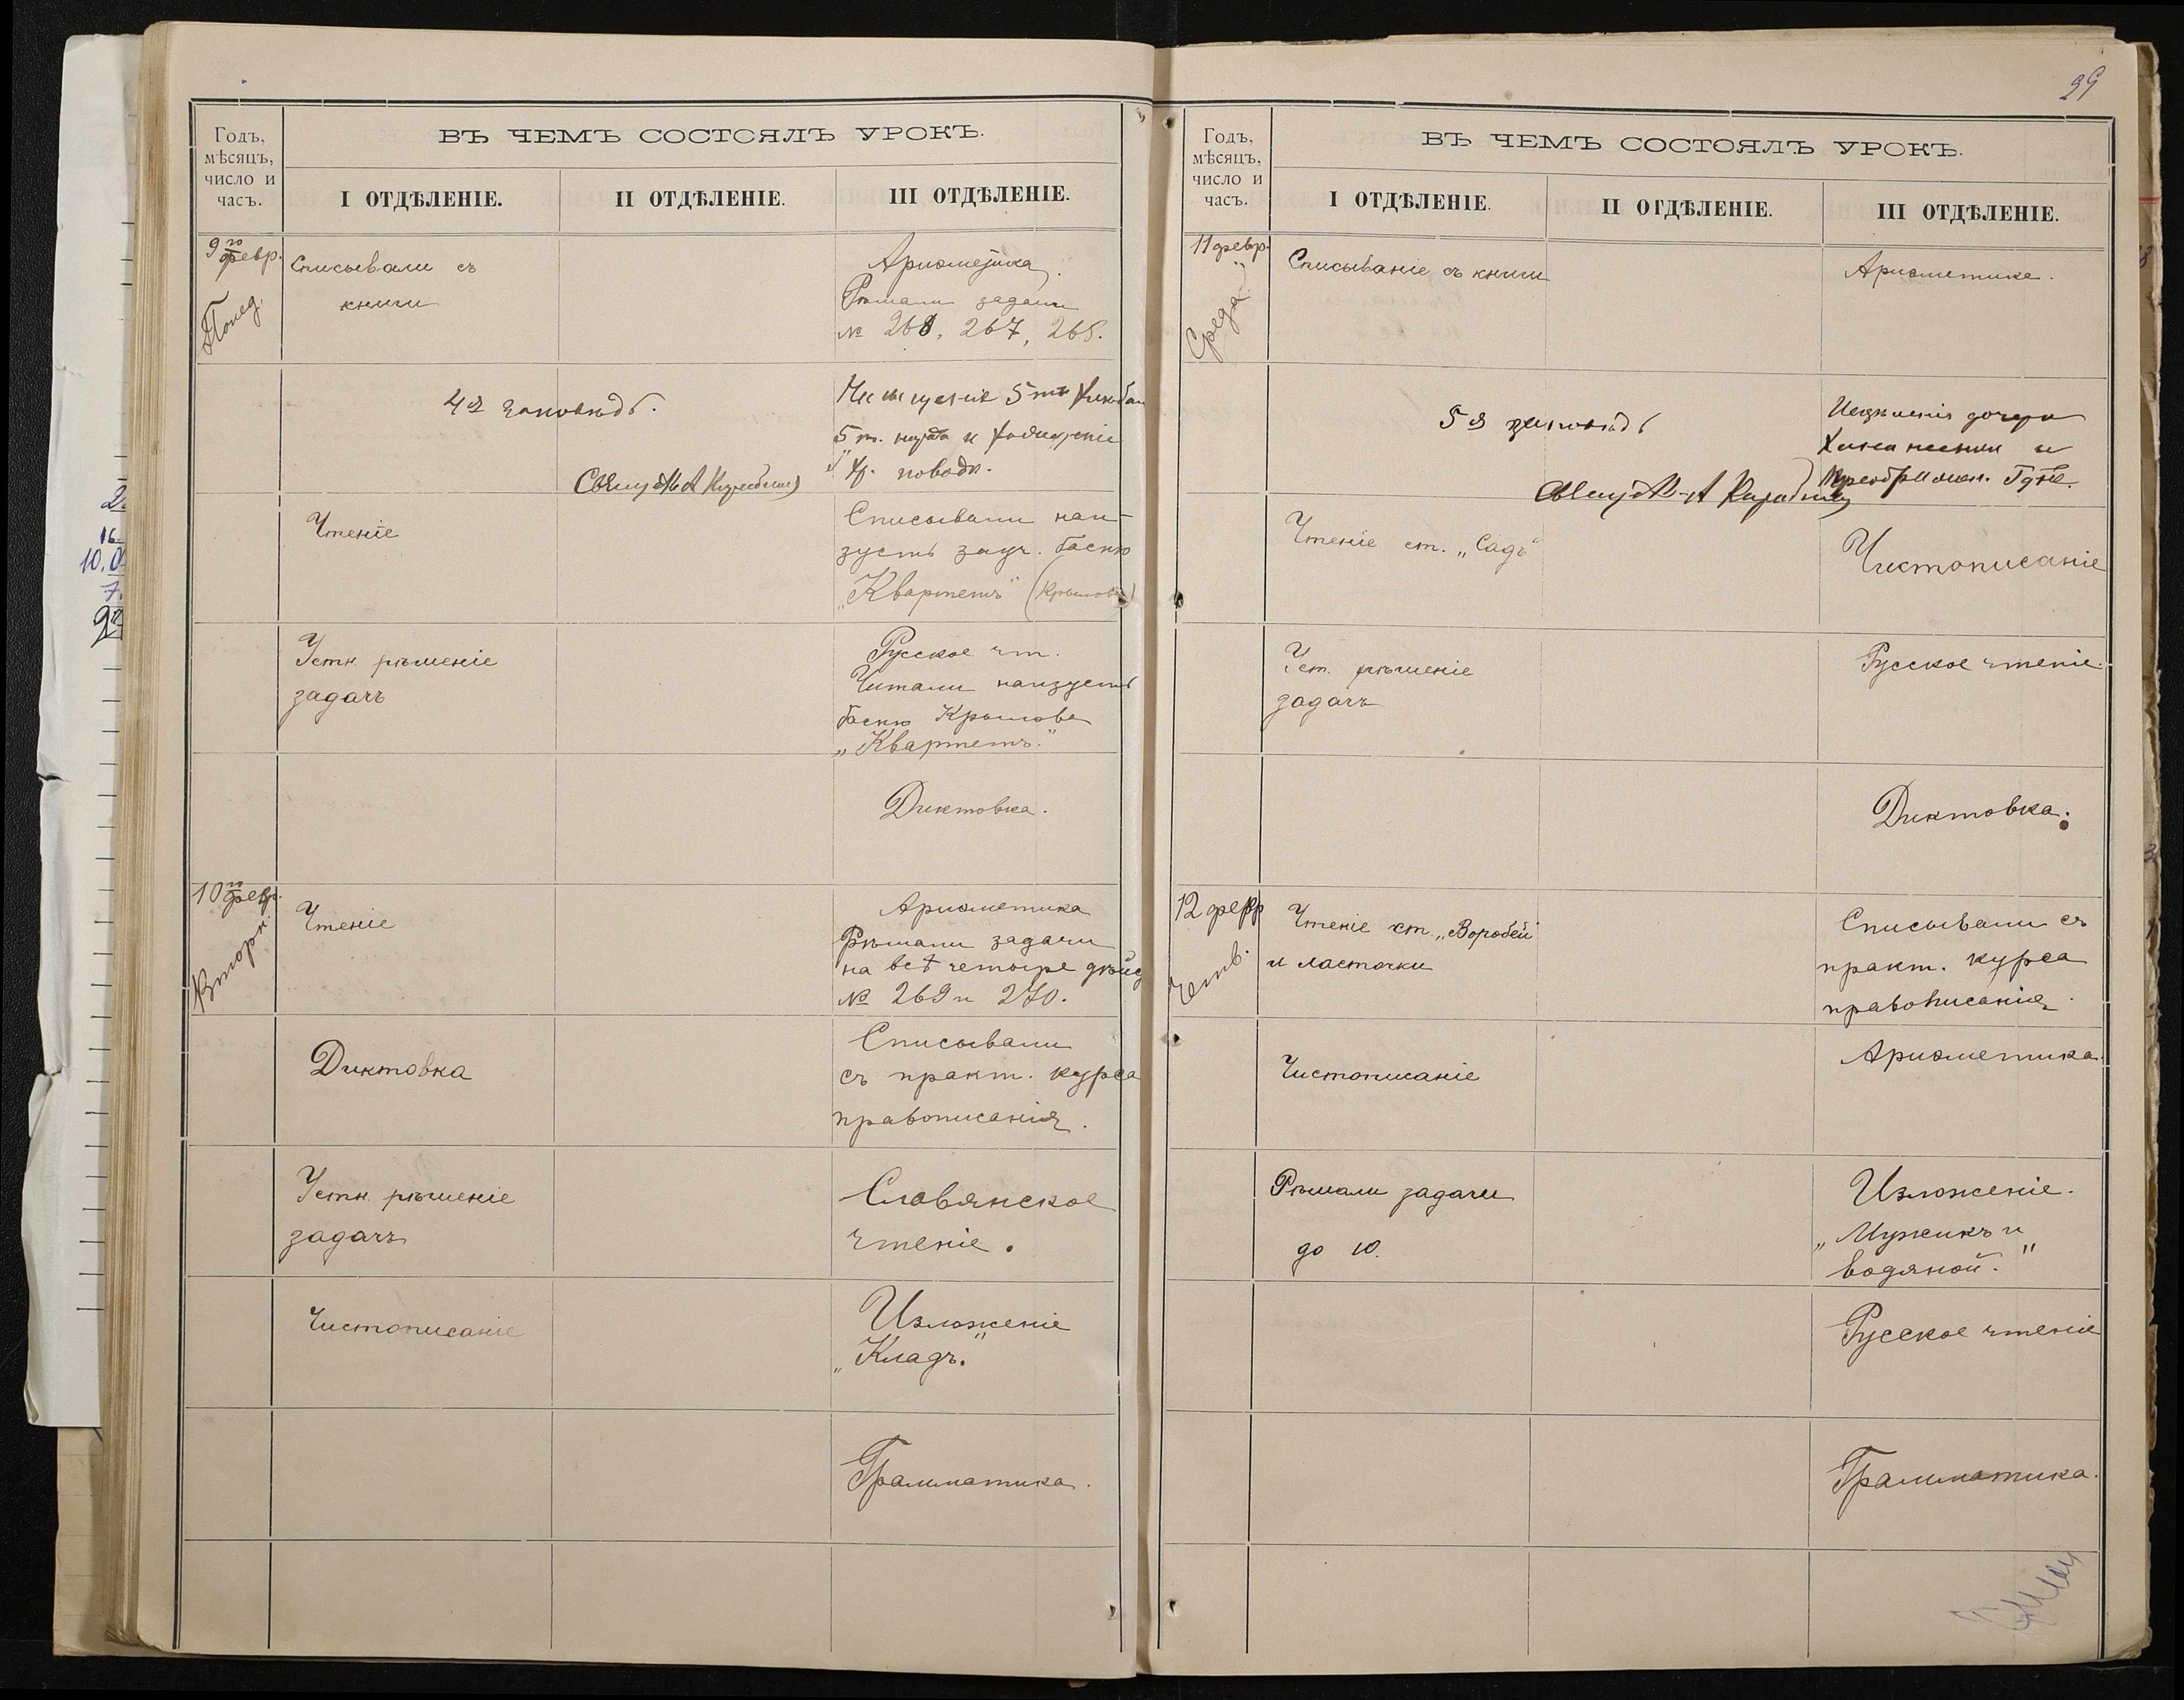 Годъ,
мѣсяцъ,
число и
часъ.
ВЪ ЧЕМЪ СОСТОЯЛЪ УРОКЪ.
I ОТДѢЛЕНІЕ.
II ОТДѢЛЕНІЕ.
III ОТДѢЛЕНІЕ.
9го февр.
Понед.
Списывали съ
книги
Ариѳметика.
Рѣшали задачи
№ 268, 267, 265.
4я заповѣдь.
5 т.
Чтеніе
Списывали наи-
зусть зауч. басню
„Квартетъ" (Крылова)
Устн. рѣшеніе
задачъ
Русское чт.
Читали наизусть
басню Крылова
„Квартетъ."
Диктовка.
10го февр.
Вторн.
Чтеніе
Ариѳметика
Рѣшали задачи
на всѣ четыре дѣйс
№ 269 и 270.
Диктовка
Списывали
съ практ. курса
правописанія.
Устн. рѣшеніе
задачъ
Славянское
чтеніе.
Чистописаніе
Изложеніе
„Кладъ."
Грамматика.
99
Годъ,
мѣсяцъ,
число и
часъ.
ВЪ ЧЕМЪ СОСТОЯЛЪ УРОКЪ.
I ОТДѢЛЕНІЕ.
II ОТДѢЛЕНІЕ.
III ОТДѢЛЕНІЕ.
11 февр.
Среда
Списываніе съ книги
Ариѳметика.
5я заповѣдь
Исцѣленія дочери
Хананеянки и
Чтеніе ст. „Садъ"
Чистописаніе
Уст. рѣшеніе
задачъ
Русское чтеніе.
Диктовка.
12 февр
Четв.
Чтеніе ст. „Воробей
и ласточки
Списывали съ
практ. курса
правописанія.
Чистописаніе
Ариѳметика.
Рѣшали задачи
до 10.
Изложеніе.
„Мужикъ и
водяной."
Русское чтеніе
Грамматика.